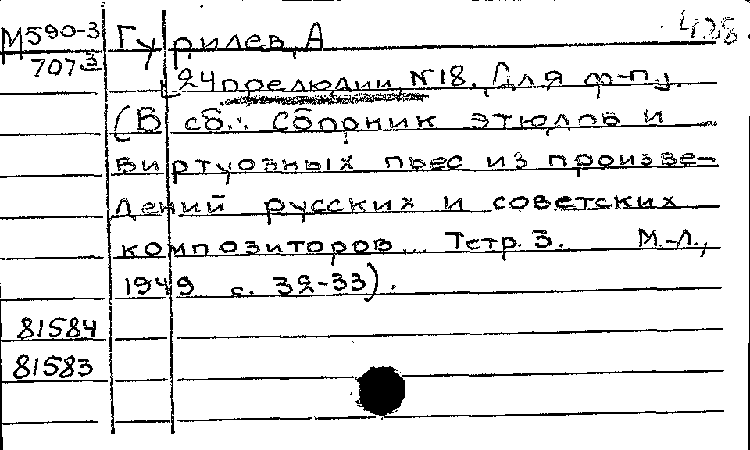 М590-3 Гурилев, А 428.
7073
[24 прелюдии, N18. Для ф-п].
(В сб.: Сборник этюдов и
виртуозных пьес из произве-
дений русских и советских
композиторов... Тетр. 3. М.-Л.,
1949 с. 32-33).
81584
81583